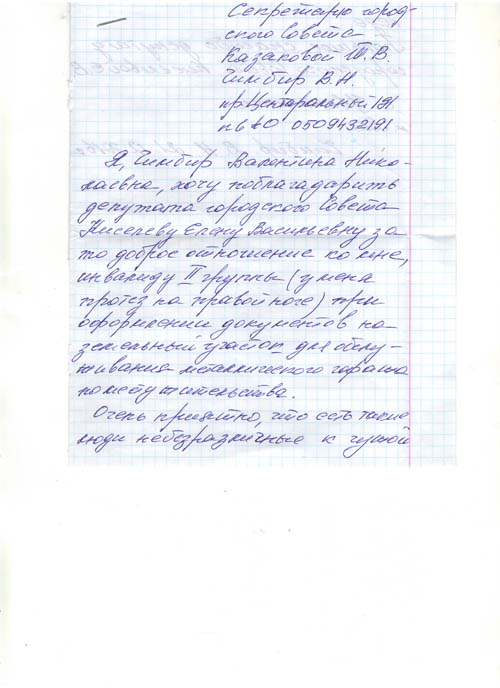 Секретарю город-
ского Совета
Казаковой Т.В.
Чимбир В.Н.
пр Центральный 191
0509432191
Я, Чимбир Валентина Нико-
лаевна, хочу поблагадарить
депутата городского Совета
Киселеву Елену Васильевну за
то доброе отношение ко мне,
инвалиду II группы (у меня
протез на правой ноге) при
оформлении документов на
земельный участок для обслу-
живания металического гаража
по месту жительства.
Очень приятно, что есть такие
люди небезразличные к чужой